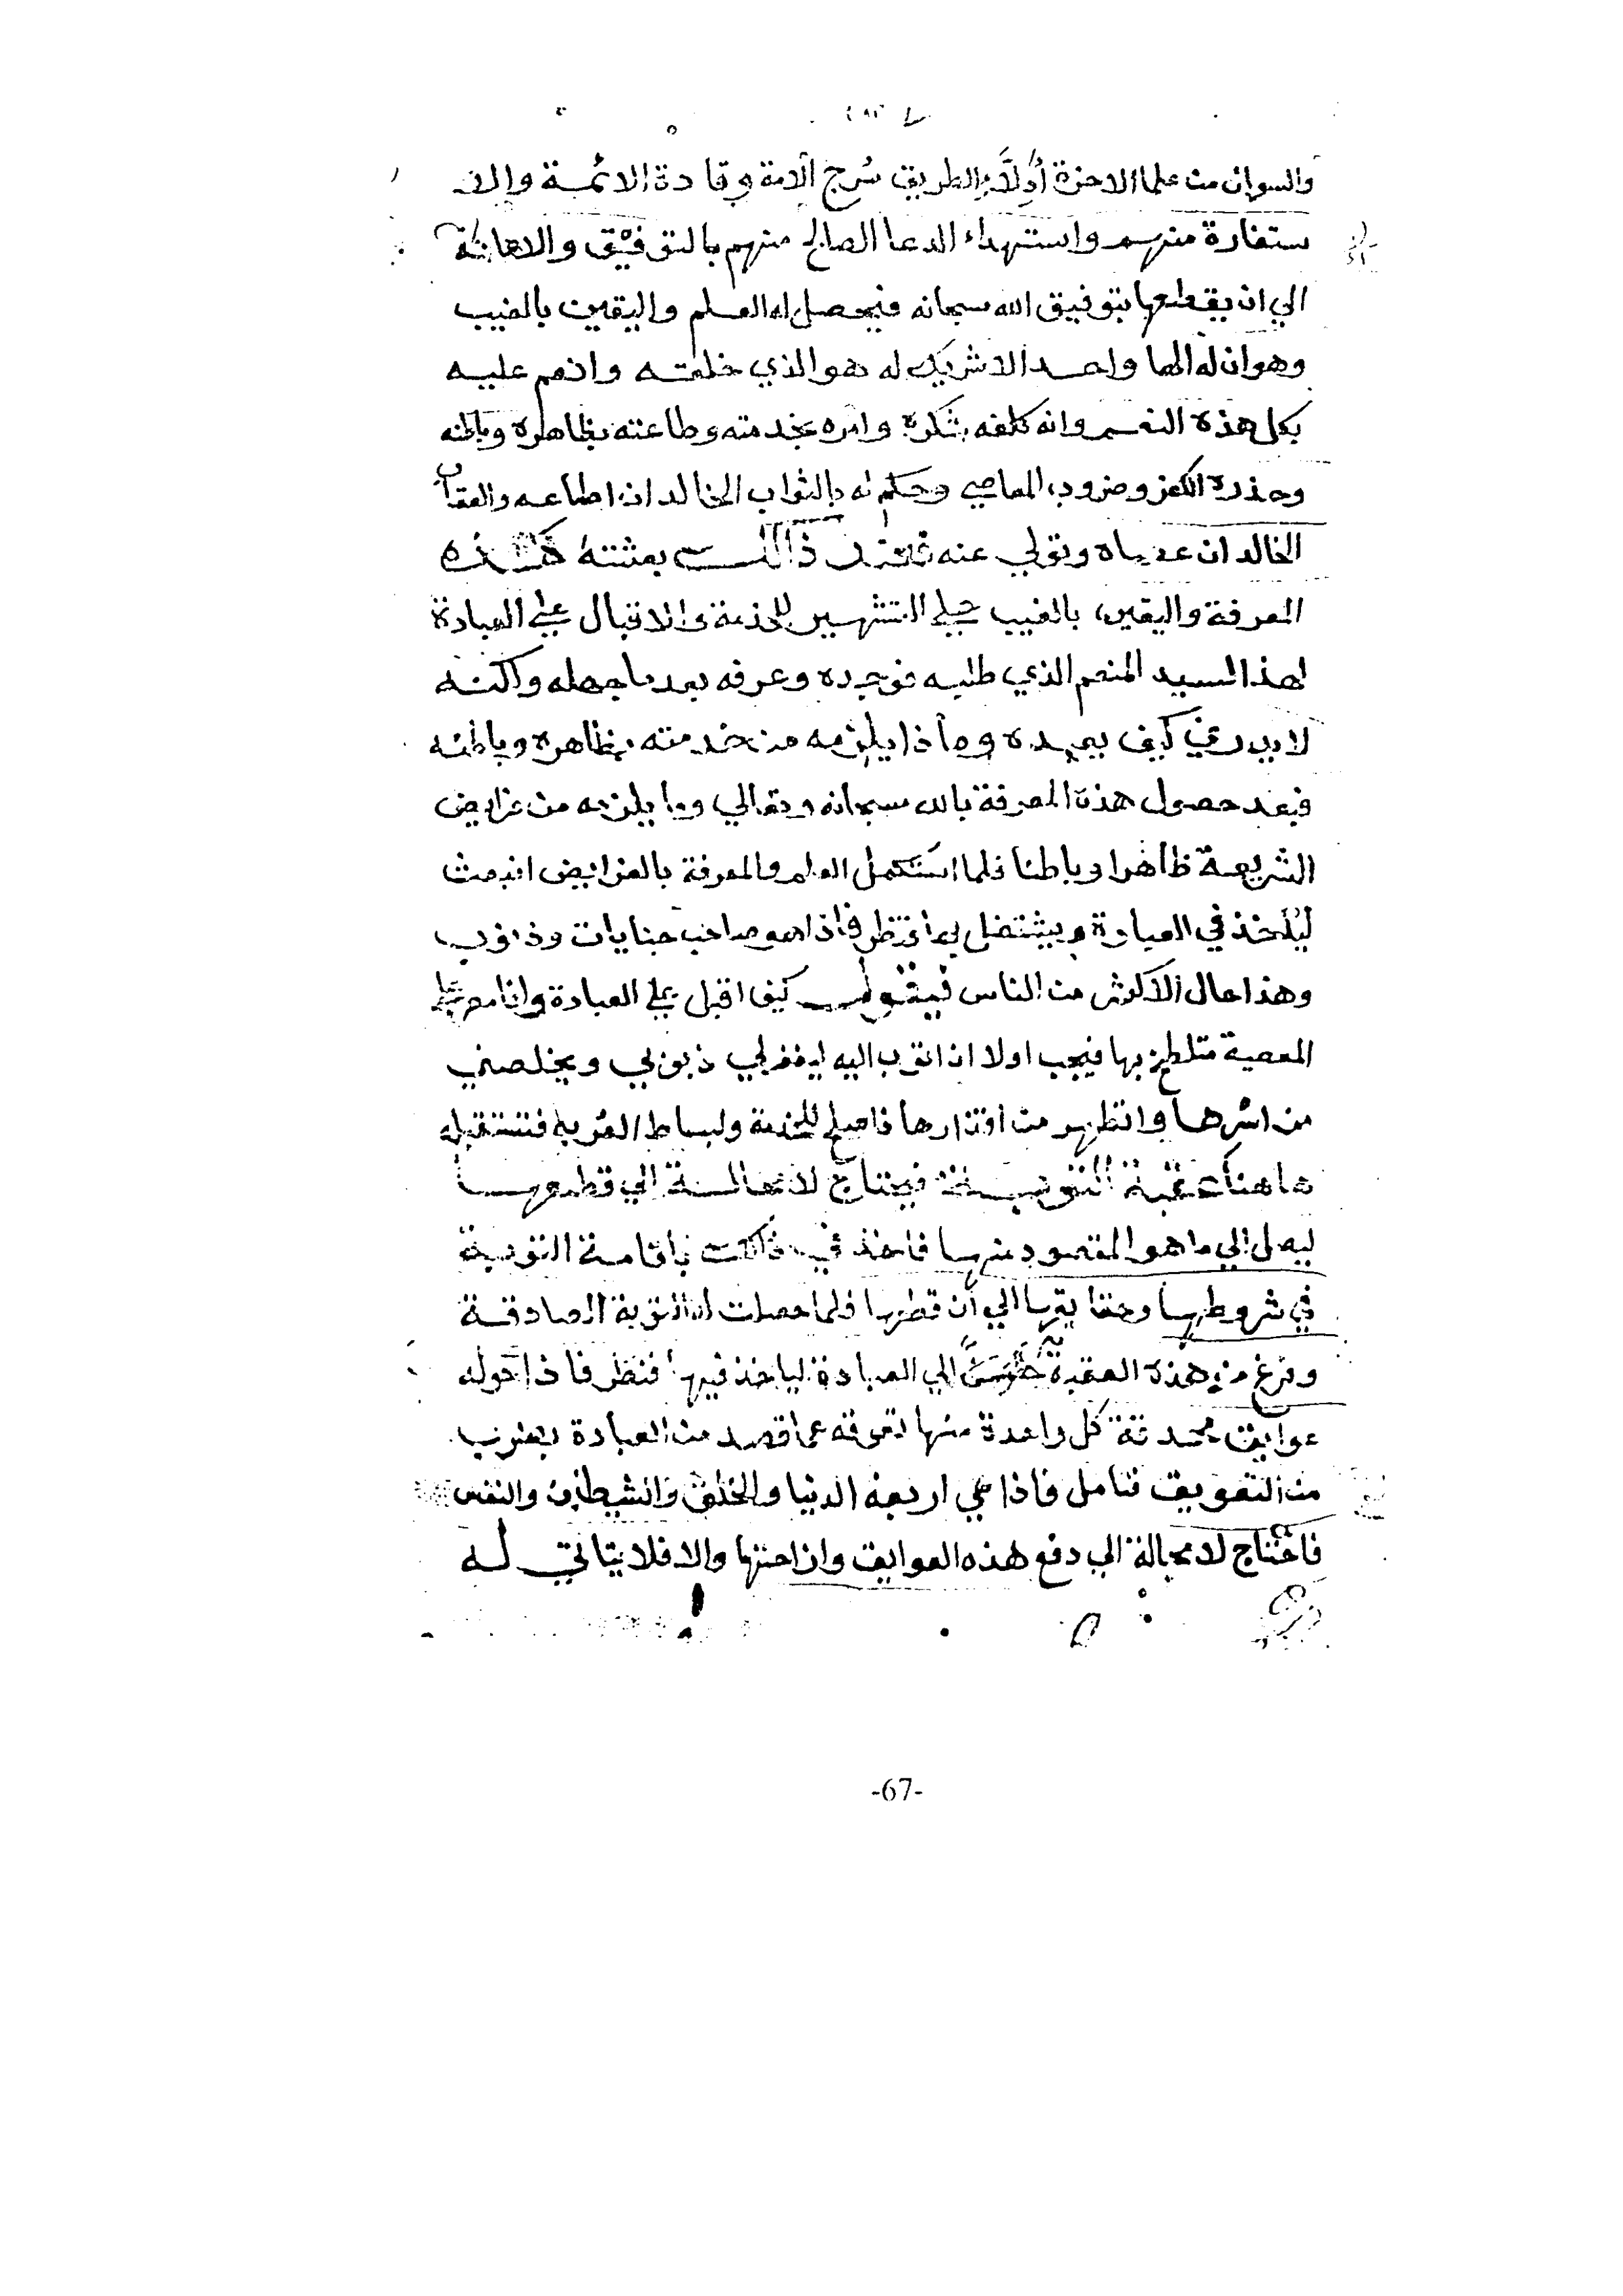 والسوال من علما الاخرة أدلّاء الطريق سُرج الامة وقادة الائمة والا
ستفادة منهم واستهداء الدعا الصالح منهم بالتوفيق والاعانة
الي ان يقطعها بتوفيق الله سبحانه فيحصل له العلم واليقين بالغيب
وهو ان له الها واحد الاشريك له هو الذي خلقه وانعم عليه
بكل هذه النعم وانه كلفه بشكره وامره بخدمته وطاعته بظاهره وباطنه
وحذره الكفر وضروب المعاصي وحكم له بالثواب الخالد ان اطاعه والعقاب
الخالد ان عصاه وتولي عنه فعند ذالك بعثته هذه
المعرفة واليقين بالغيب علي التشمير للخدمة والاقبال علي العبادة
لهذا السيد المنعم الذي طلبه فوجده وعرفه بعد ما جهله ولكنه
لا يدري كيف يعبده وماذا يلزمه من خدمته بظاهره وباطنه
فبعد حصول هذه المعرفة بالله سبحانه وتعالي وما يلزمه من فرايض
الشريعة ظاهرا وباطنا فلما استكمل العلم والمعرفة بالفرائض انبعث
ليأخذ في العبادة ويشتغل بها فنظر فاذا هو صاحب جنايات وذنوب
وهذا حال الاكثر من الناس فيقول كيف اقبل علي العبادة وانا مصر علي
المعصية متلطخ بها فيجب اولا ان اتوب اليه ليغفر لي ذنوبي ويخلصني
من اسرها واتطهر من اقذارها فاصلح للخدمة ولبساط القربة فتستقبله
هاهنا عقبة التوبة فيحتاج لا محالة الي قطعها
ليصل الي ما هو المقصود منها فاخذ في ذلك باقامة التوبة
في شروطها وحقايقها الي ان قطعها فلما حصلت له التوبة الصادقة
وفرغ من هذه العقبة الي العبادة لياخذ فيها فنظر فاذا حوله
عوايق محدقة كل واحدة منها تعوقه عما قصد من العبادة بضرب
من التعويق فتامل فاذا هي اربعة الدنيا والخلق والشيطان والنفس
فاحتاج لا محالة الي دفع هذه العوايق وازاحتها والا فلا يتاتي له
-67-